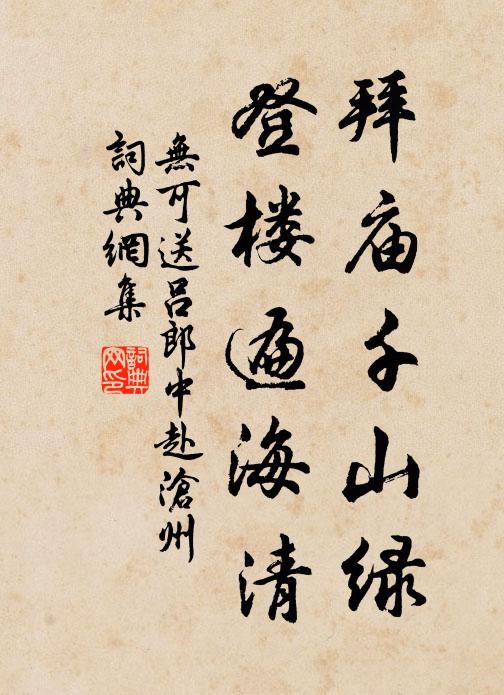 拜庙千山绿
登楼遍海清
無可送呂郎中赴滄州
詞典網集
詞典网印